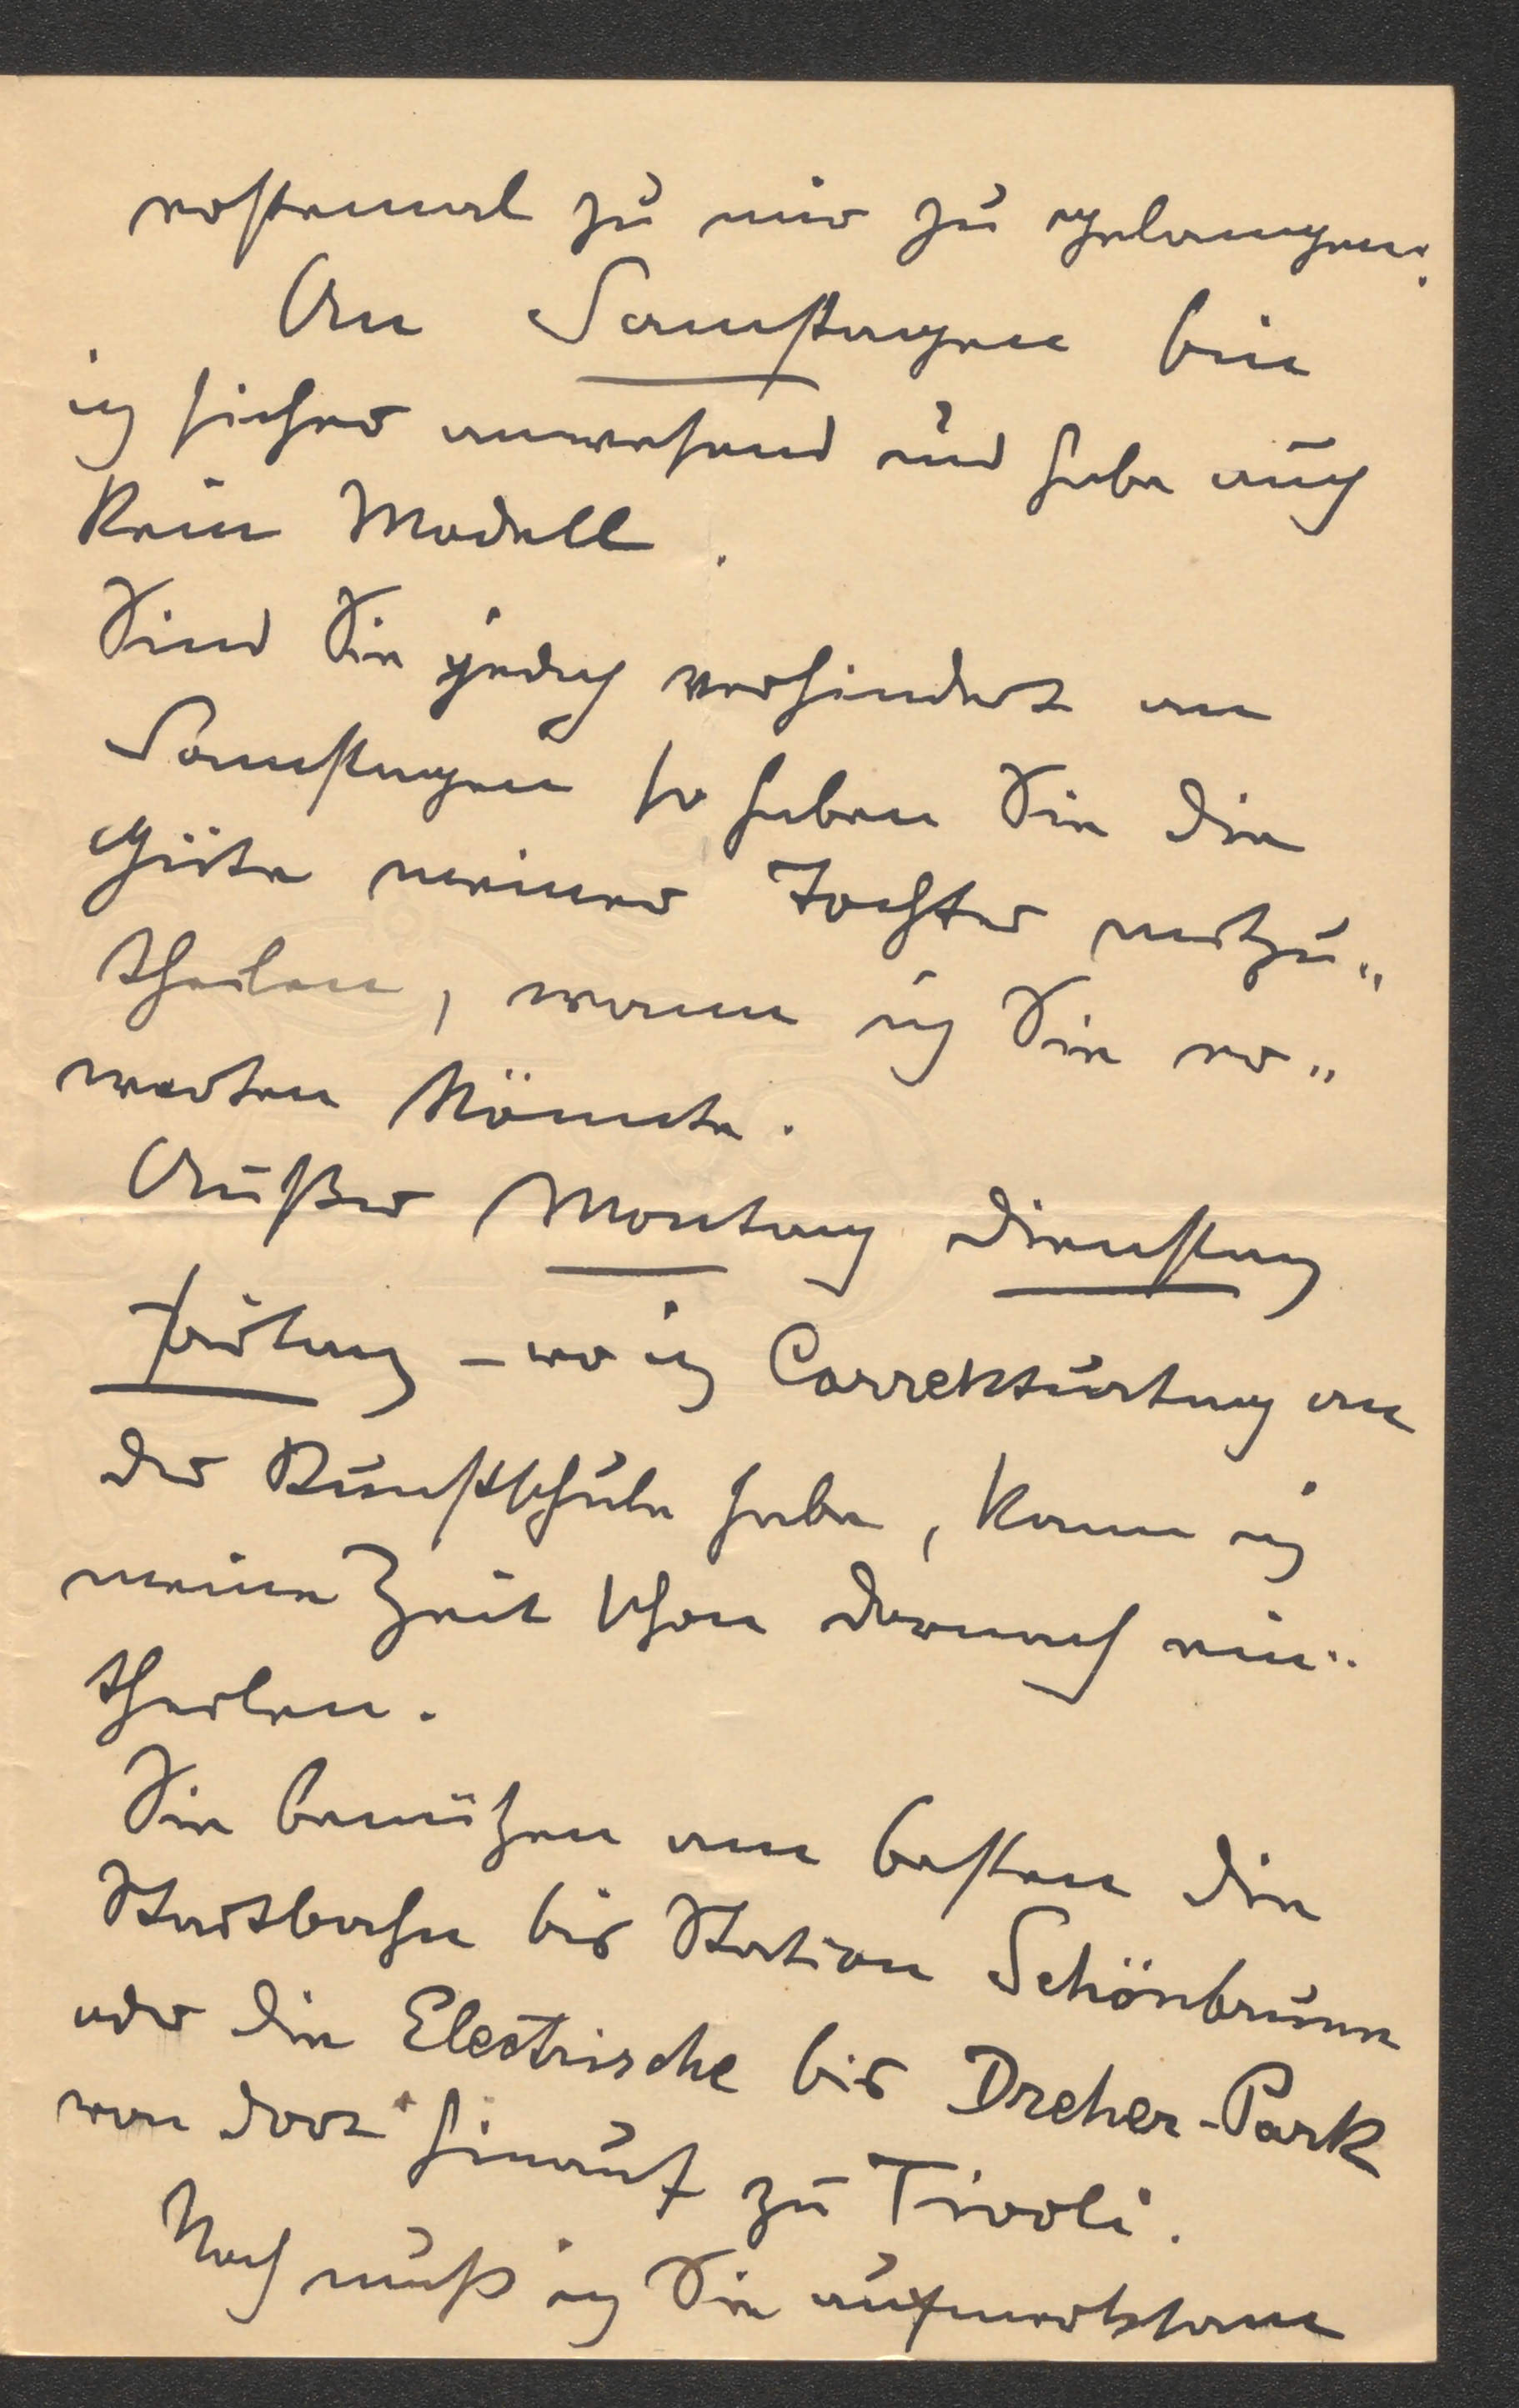 erstemal zu mir zu gelangen.
An Samstagen bin
ich sicher anwesend und habe auch
kein Modell.
Sind Sie jedoch verhindert an
Samstagen so haben Sie die
Güte meiner Tochter mitzu„
theilen, wann ich Sie er„
warten könnte.
Außer Montag Dienstag
Freitag – wo ich Correkturtag an
der Kunstschule habe, kann ich
meine Zeit schon darnach ein„
theilen.
Sie benützen am besten die
Stadtbahn bis Station Schönbrunn
oder die Electrische bis Dreher-Park
von dort hinauf zu Tivoli.
Noch muß ich Sie aufmerksam